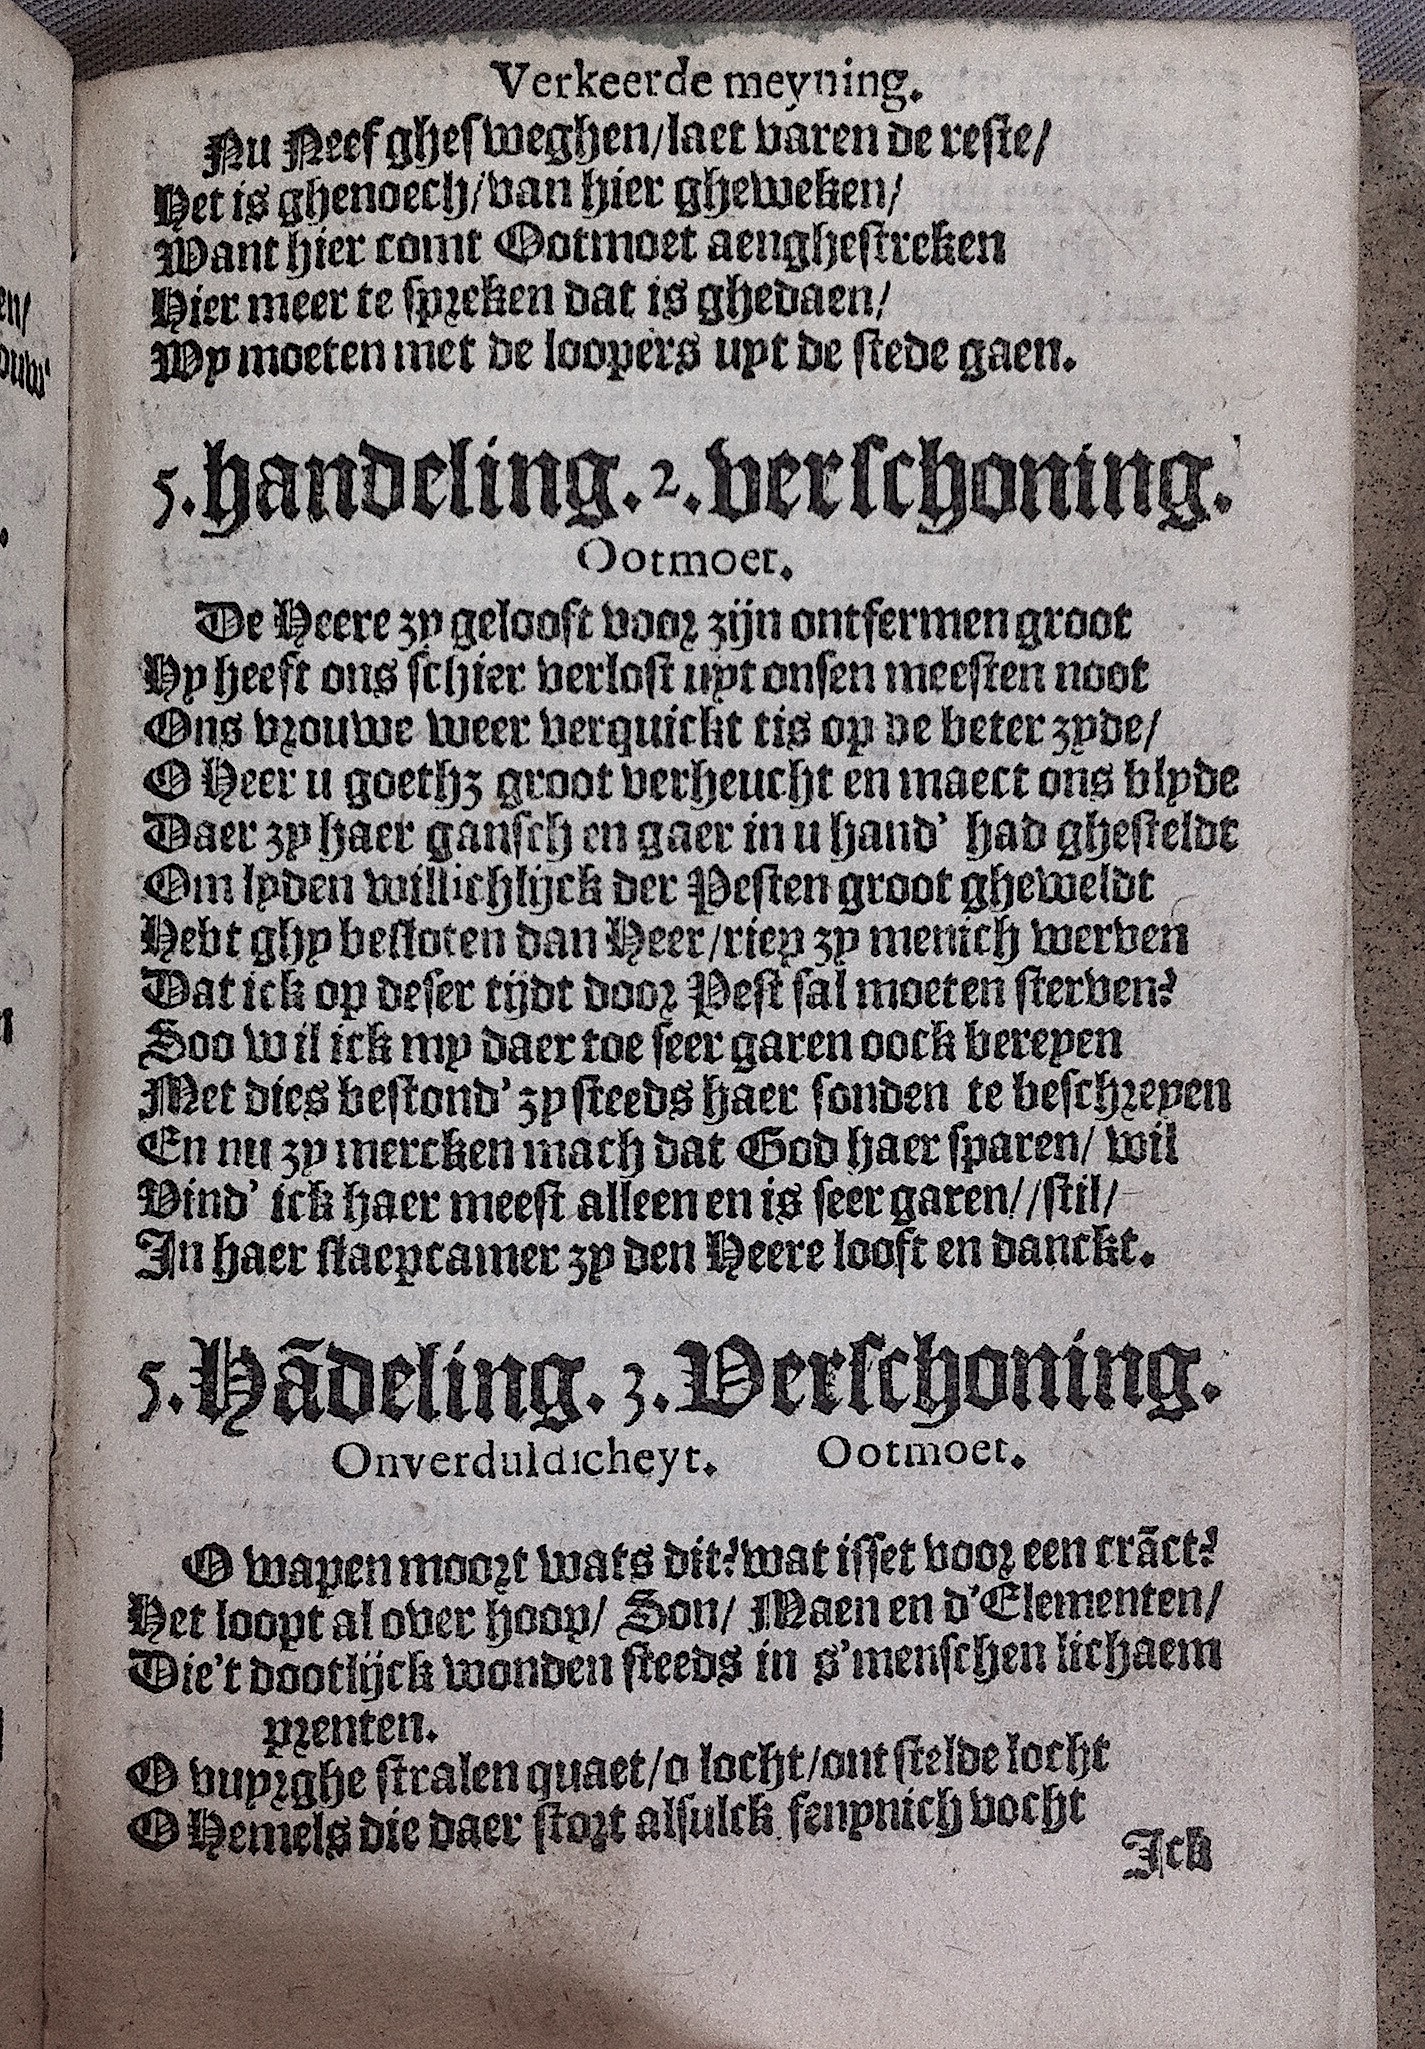 Verkeerde meyning.
Nu Neef ghesweghen/laet varen de reste/
Het is ghenoech/van hier gheweken/
Want hier comt Ootmoet aenghestreken
Hier meer te spreken dat is ghedaen/
Wy moeten met de loopers uyt de stede gaen.
5. handeling. 2. verschoning.
Ootmoet.
De Heere zy gelooft voor zijn ontfermen groot
Hy heeft ons schier verlost uyt onsen meesten noot
Ons vrouwe weer verquickt tis op de beter zyde/
O Heer u goethz groot verheucht en maect ons blyde
Daer zy haer gansch en gaer in u hand' had ghesteldt
Om lyden willichlijck der Pesten groot gheweldt
Hebt ghy besloten dan Heer/riep zy menich werven
Dat ick op deser tijdt door Pest sal moeten sterven?
Soo wil ick my daer toe seer garen oock bereyen
Met dies bestond' zy steeds haer sonden te beschreyen
En nu zy mercken mach dat God haer sparen/ wil
Vind' ick haer meest alleen en is seer garen//stil/
In haer slaepcamer zy den Heere looft en danckt.
5. Hādeling. 3. Verschoning.
Onverduldicheyt. Ootmoet.
O wapen moort wats dit? wat isset voor een crāct?
Het loopt al over hoop/ Son/ Maen en d'Elementen/
Die't dootlijck wonden steeds in s'menschen lichaem
prenten.
O vuyrghe stralen quaet/o locht/ontstelde locht
O Hemels die daer stort alsulck fenynich vocht
Ick